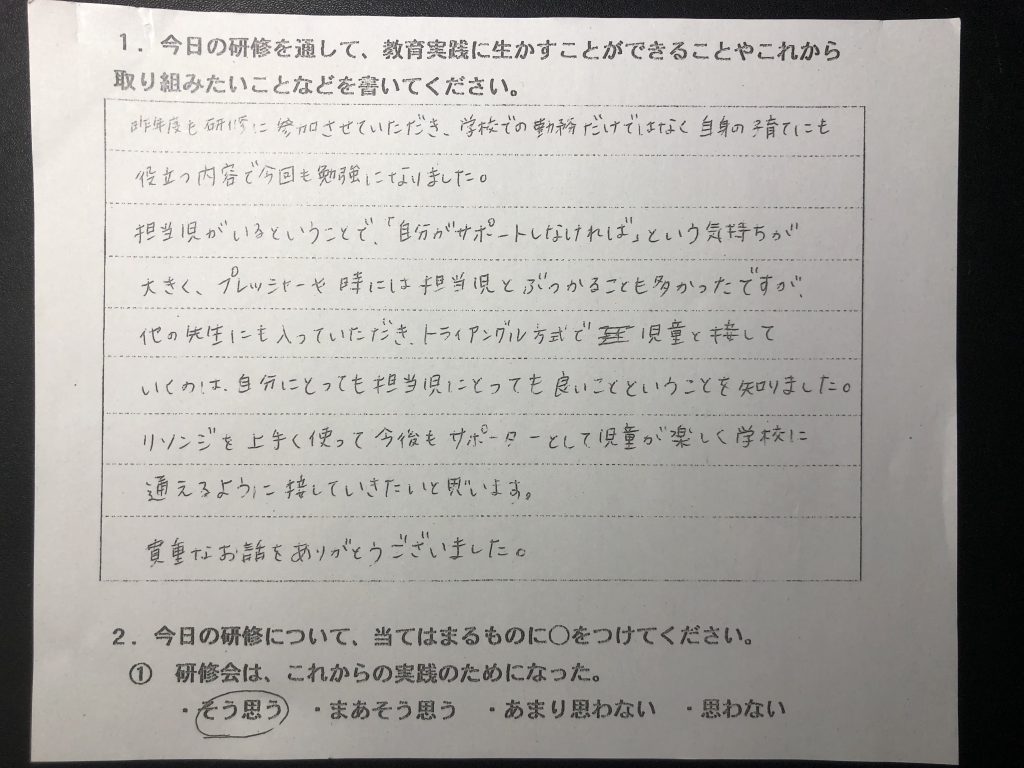 1．今日の研修を通して、教育実践に生かすことができることやこれから
取り組みたいことなどを書いてください。
昨年度も研修に参加させていただき、学校での勤務だけではなく自身の子育てにも
役立つ内容で今回も勉強になりました。
担当児がいるということで、「自分がサポートしなければ」という気持ちが
大きく、プレッシャーや時には担当児とぶつかることも多かったですが、
他の先生にも入っていただき、トライアングル方式で児童と接して
いくのは、自分にとっても担当児にとっても良いことということを知りました。
リソンジを上手く使って今後もサポーターとして児童が楽しく学校に
通えるように接していきたいと思います。
貴重なお話をありがとうございました。
2．今日の研修について、当てはまるものに○をつけてください。
① 研修会は、これからの実践のためになった。
・そう思う ・まあそう思う ・あまり思わない ・思わない